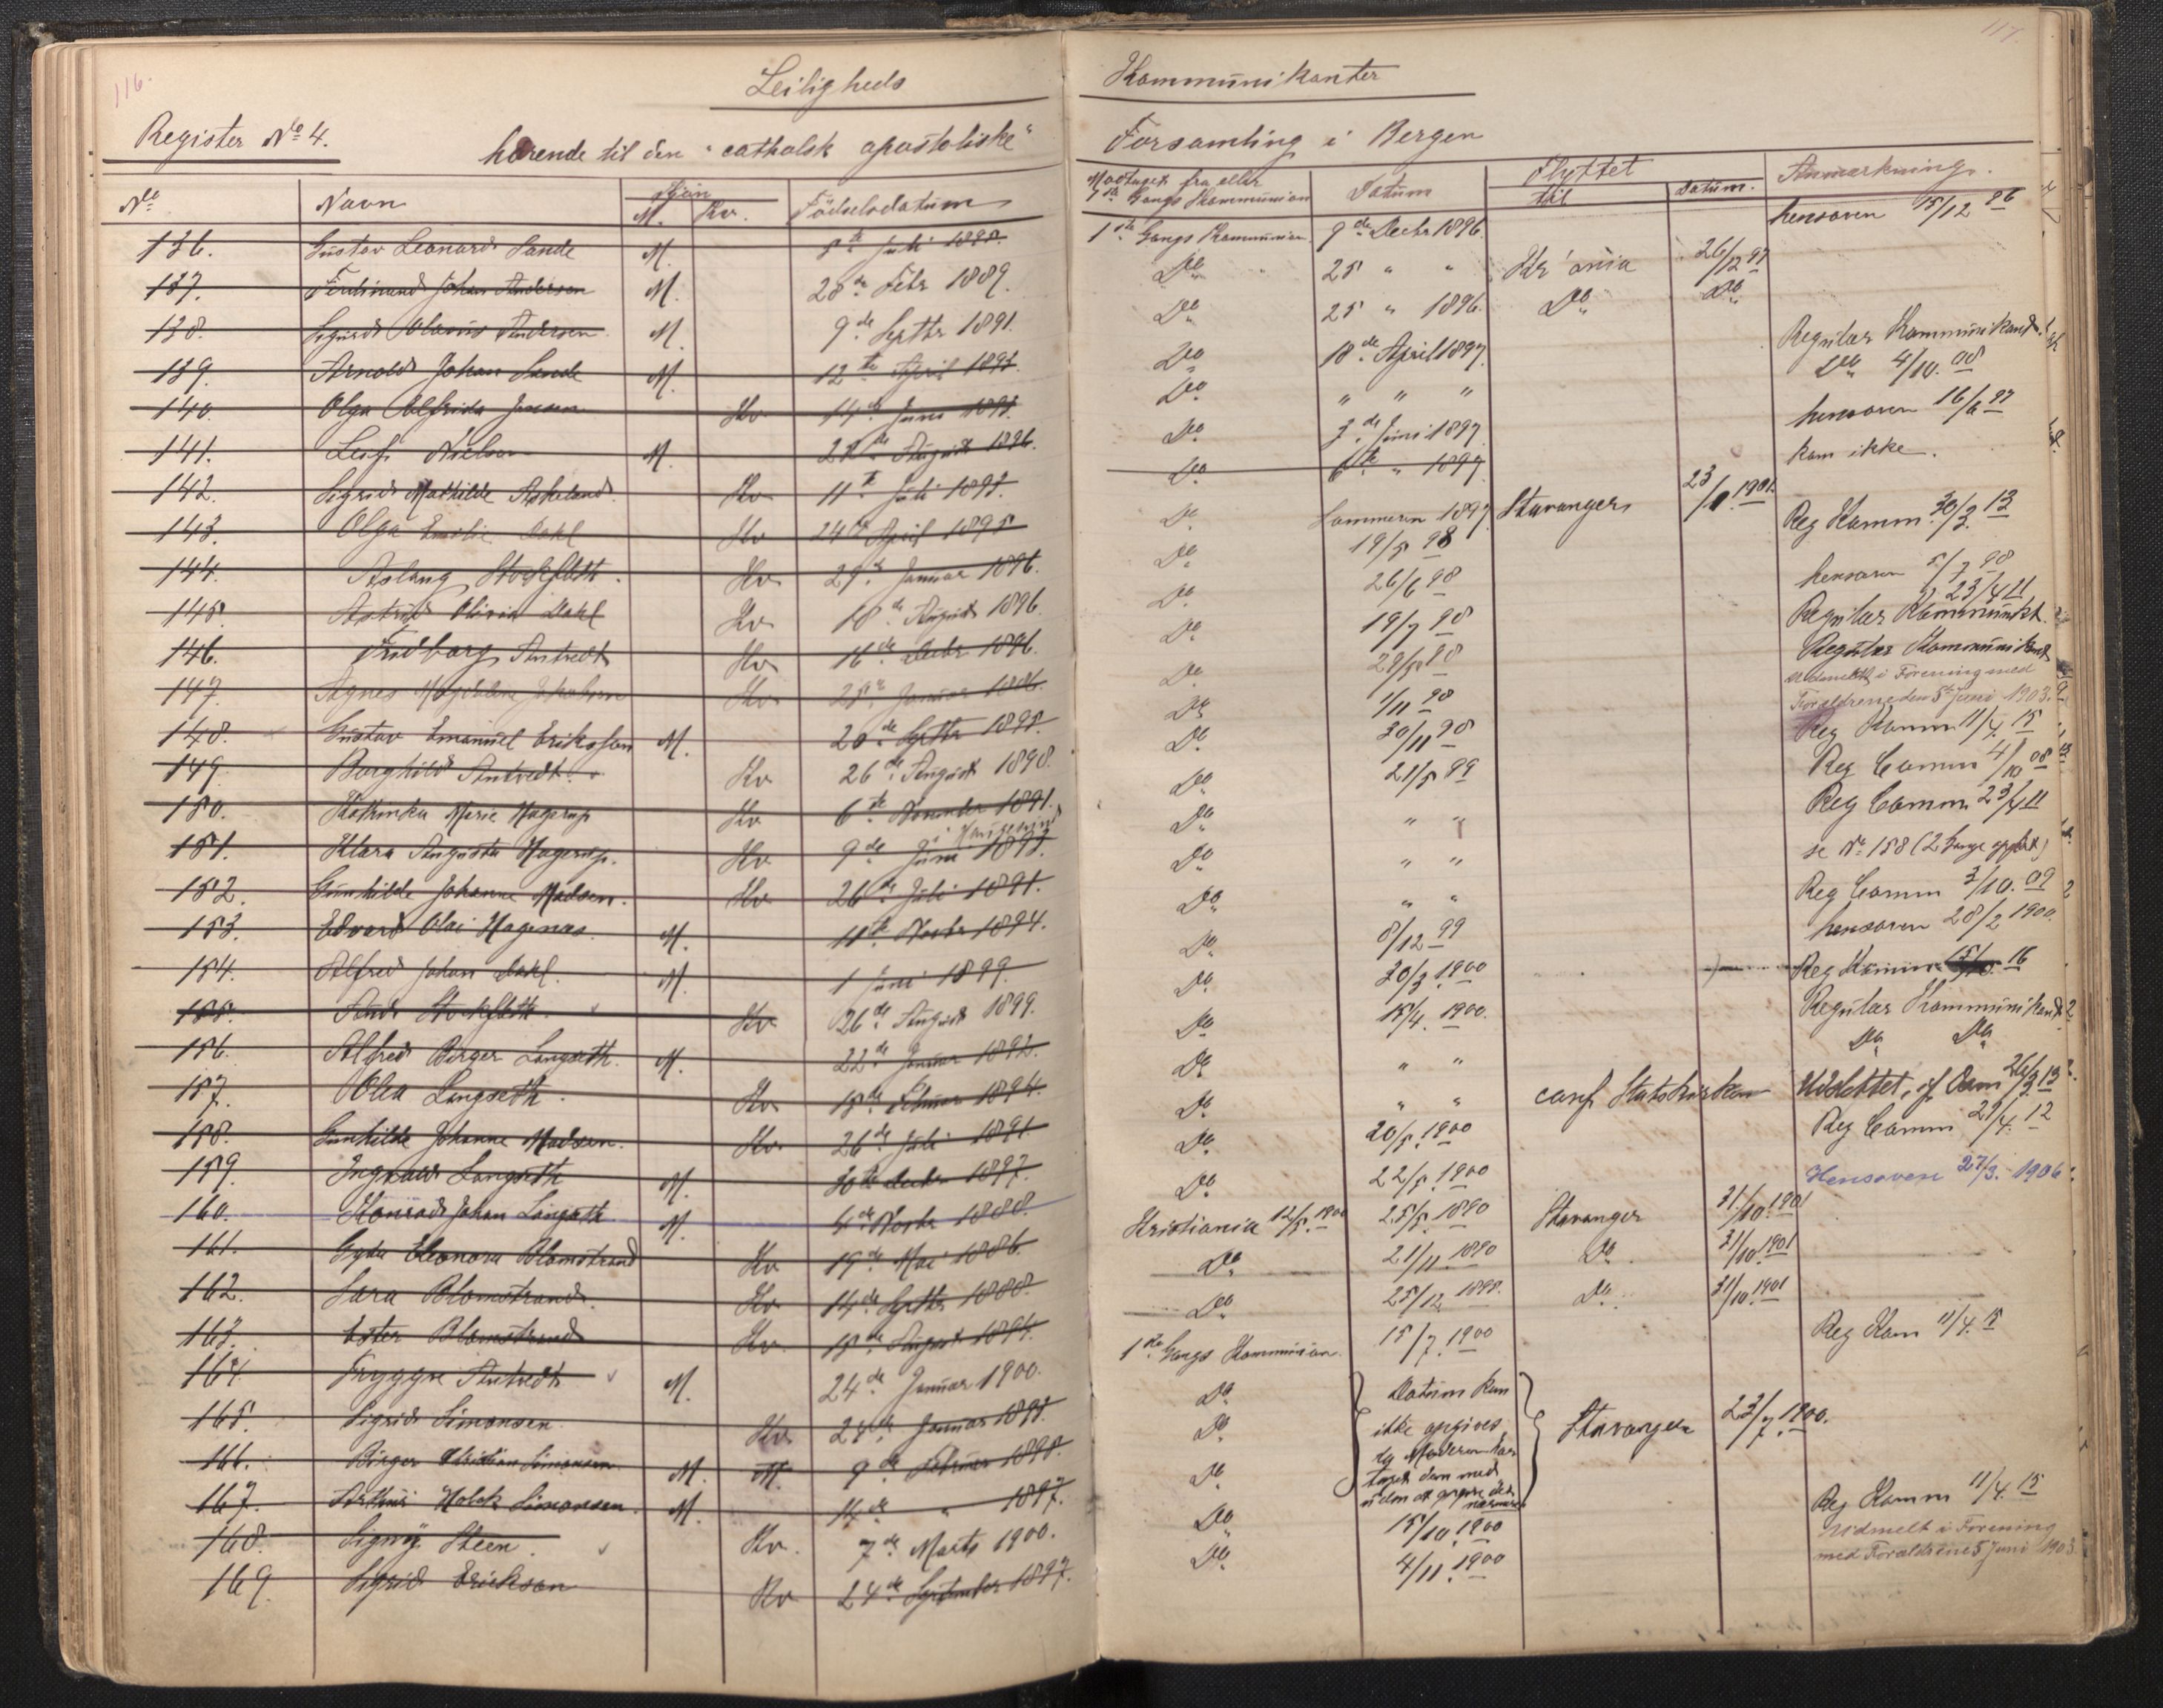 116.
Leiligheds
Register No 4.
hørende til den "catholsk apostoliske"
No Navn Kjön M. Kv. Födselsdatum
136. Gustav Leonard Sande M. 5te Juli 1895.
137. Ferdinand Johan Andersen M. 28de Febr 1889.
138. Sigurd Olaus Andersen M. 9de Septbr 1891.
139. Arnold Johan Sande M. 12te April 1893.
140. Olga Alfrida Jensen Kv 14de Juni 1893.
141. Leif Nielsen M. August 1896.
142. Sigrid Mathilde Askeland. Kv 11te Juli 1893.
143. Olga Emilie Dahl Kv 24de April 1895
144. Aslaug Stockfleth. Kv 29de Januar 1896.
145. Astrid Olivia Dahl Kv 18de August 1896.
146. Fridborg Antvedt Kv 16de Decbr 1896.
147. Agnes Magdalene Kv Januar 1886.
148. Gustav Emanuel Eriksson M. 20de Septbr 1895.
149. Borghild Antvedt. Kv 26de August 1898.
150. Kathinka Marie Hagerup Kv 6te November 1891.
151. Klara Augusta Hagerup. Kv 9de Juni 1893.
152. Gunhilde Johanne Madsen. Kv 26de Juli 1891.
153. Edvard Olai Hagenæs M. 11te Novbr 1894.
154. Alfred Johan Dahl. M. 1 Juni 1899.
155. Stockfleth. Kv 26de August 1899.
156. Alfred Birger Langseth. M. 22de Januar 1892.
157. Olea Langseth. Kv 15de Februar 1894.
158. Gunhilde Johanne Madsen. Kv. 26de Juli 1891.
159. Ingvald Langseth M. 30te Decbr 1897.
160. Konrad Johan Langseth M. 4de Novbr 1888.
161. Gyda Eleonora Blomstrand Kv 19de Mai 1886.
162. Sara Blomstrand. Kv 14de Septbr 1888.
163. Ester Blomstrand Kv. 15de August 1894.
164. Tryggve Antvedt M. 24de Januar 1900.
165. Sigrid Simonsen. Kv. 24de Januar 1893.
166. Birger Christian Simonsen M. M. 9de Februar 1895.
167. Arthur Holck Simonsen. M. 14de " 1897.
168. Signy Steen. Kv. 7de Marts 1900.
169. Sigrid Erickson Kv 24de September 1897.
117.
Kommunikanter
Forsamling i Bergen
Modtaget fra eller 1ste Gangs Kommunion Datum Flyttet til Datum. Anmærkning.
1ste Gangs Kommunion. 9de Decbr 1896. hensoven 15/12 96
Do 25 " " Kr'ania 26/12 97
Do 25 " 1896. Do Do
Do 18de April 1897. Regulær Kommunikant.
Do " " " Do 4/10. 08
Do 3de Juni 1897 hensoven 16/6 97
Do 6te " 1897 kom ikke.
Do Sommeren 1897 Stavanger 23/ 1901. Reg Komm. 30/3. 13
Do 19/5 98
Do 26/6 98 hensoven 5/7 98
Do 19/7 98 Regulær Kommunikt. 23/4 11
Do 98 Regulær Kommunikant
Do 1/11 98 Udmeldt i Forening med Forældrene den 5te Juni 1903.
Do 30/11 98 Reg Komm 11/4. 15
Do 21/5 99 Reg Comm 4/10 08
Do " " Reg Comm 23/4 11
Do " " se No 158 (2 Gange opført)
Do " " Reg Comm 3/10. 09
Do 8/12 99 hensoven 28/2 1900.
Do 30/3 1900 Reg Komm 16
Do 15/4. 1900. Regulær Kommunikant
Do " " Do Do
Do " " conf Statskirken Udslettet,
Do 20/5. 1900 Reg Comm 29/4. 12
Do 22/5. 1900 Hensoven 27/3. 1906
Kristiania 12/5. 1900 25/5. 1890 Stavanger 31/10. 1901
Do 21/11. 1890 Do. 31/10. 1901
Do 25/12. 1895. Do 31/10. 1901
1ste Gangs Kommunion. 15/7. 1900 Reg Kom 11/4. 15
Do Datum kan
Do ikke opgives, Stavanger 23/7. 1900.
Do
Do 15/10. 1900 Reg Komm 11/4. 15
Do 4/11. 1900 Udmeldt i Forening
med Forældrene 5 Juni 1903